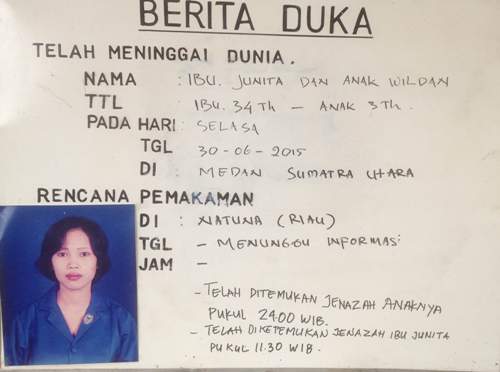 BERITA DUKA
TELAH MENINGGAI DUNIA.
NAMA : IBU. JUNITA DAN ANAK WILDAN
TTL IBU. 34 Th - ANAK 3 Th.
PADA HARI : SELASA
TGL 30-06-2015
DI : MEDAN SUMATRA UTARA
RENCANA PEMAKAMAN
DI : NATUNA (RIAU)
TGL - MENUNGGU INFORMASI
JAM -
- TELAH DITEMUKAN JENAZAH ANAKNYA
PUKUL 24.00 WIB.
- TELAH DIKETEMUKAN JENAZAH IBU JUNITA
PUKUL 11.30 WIB.